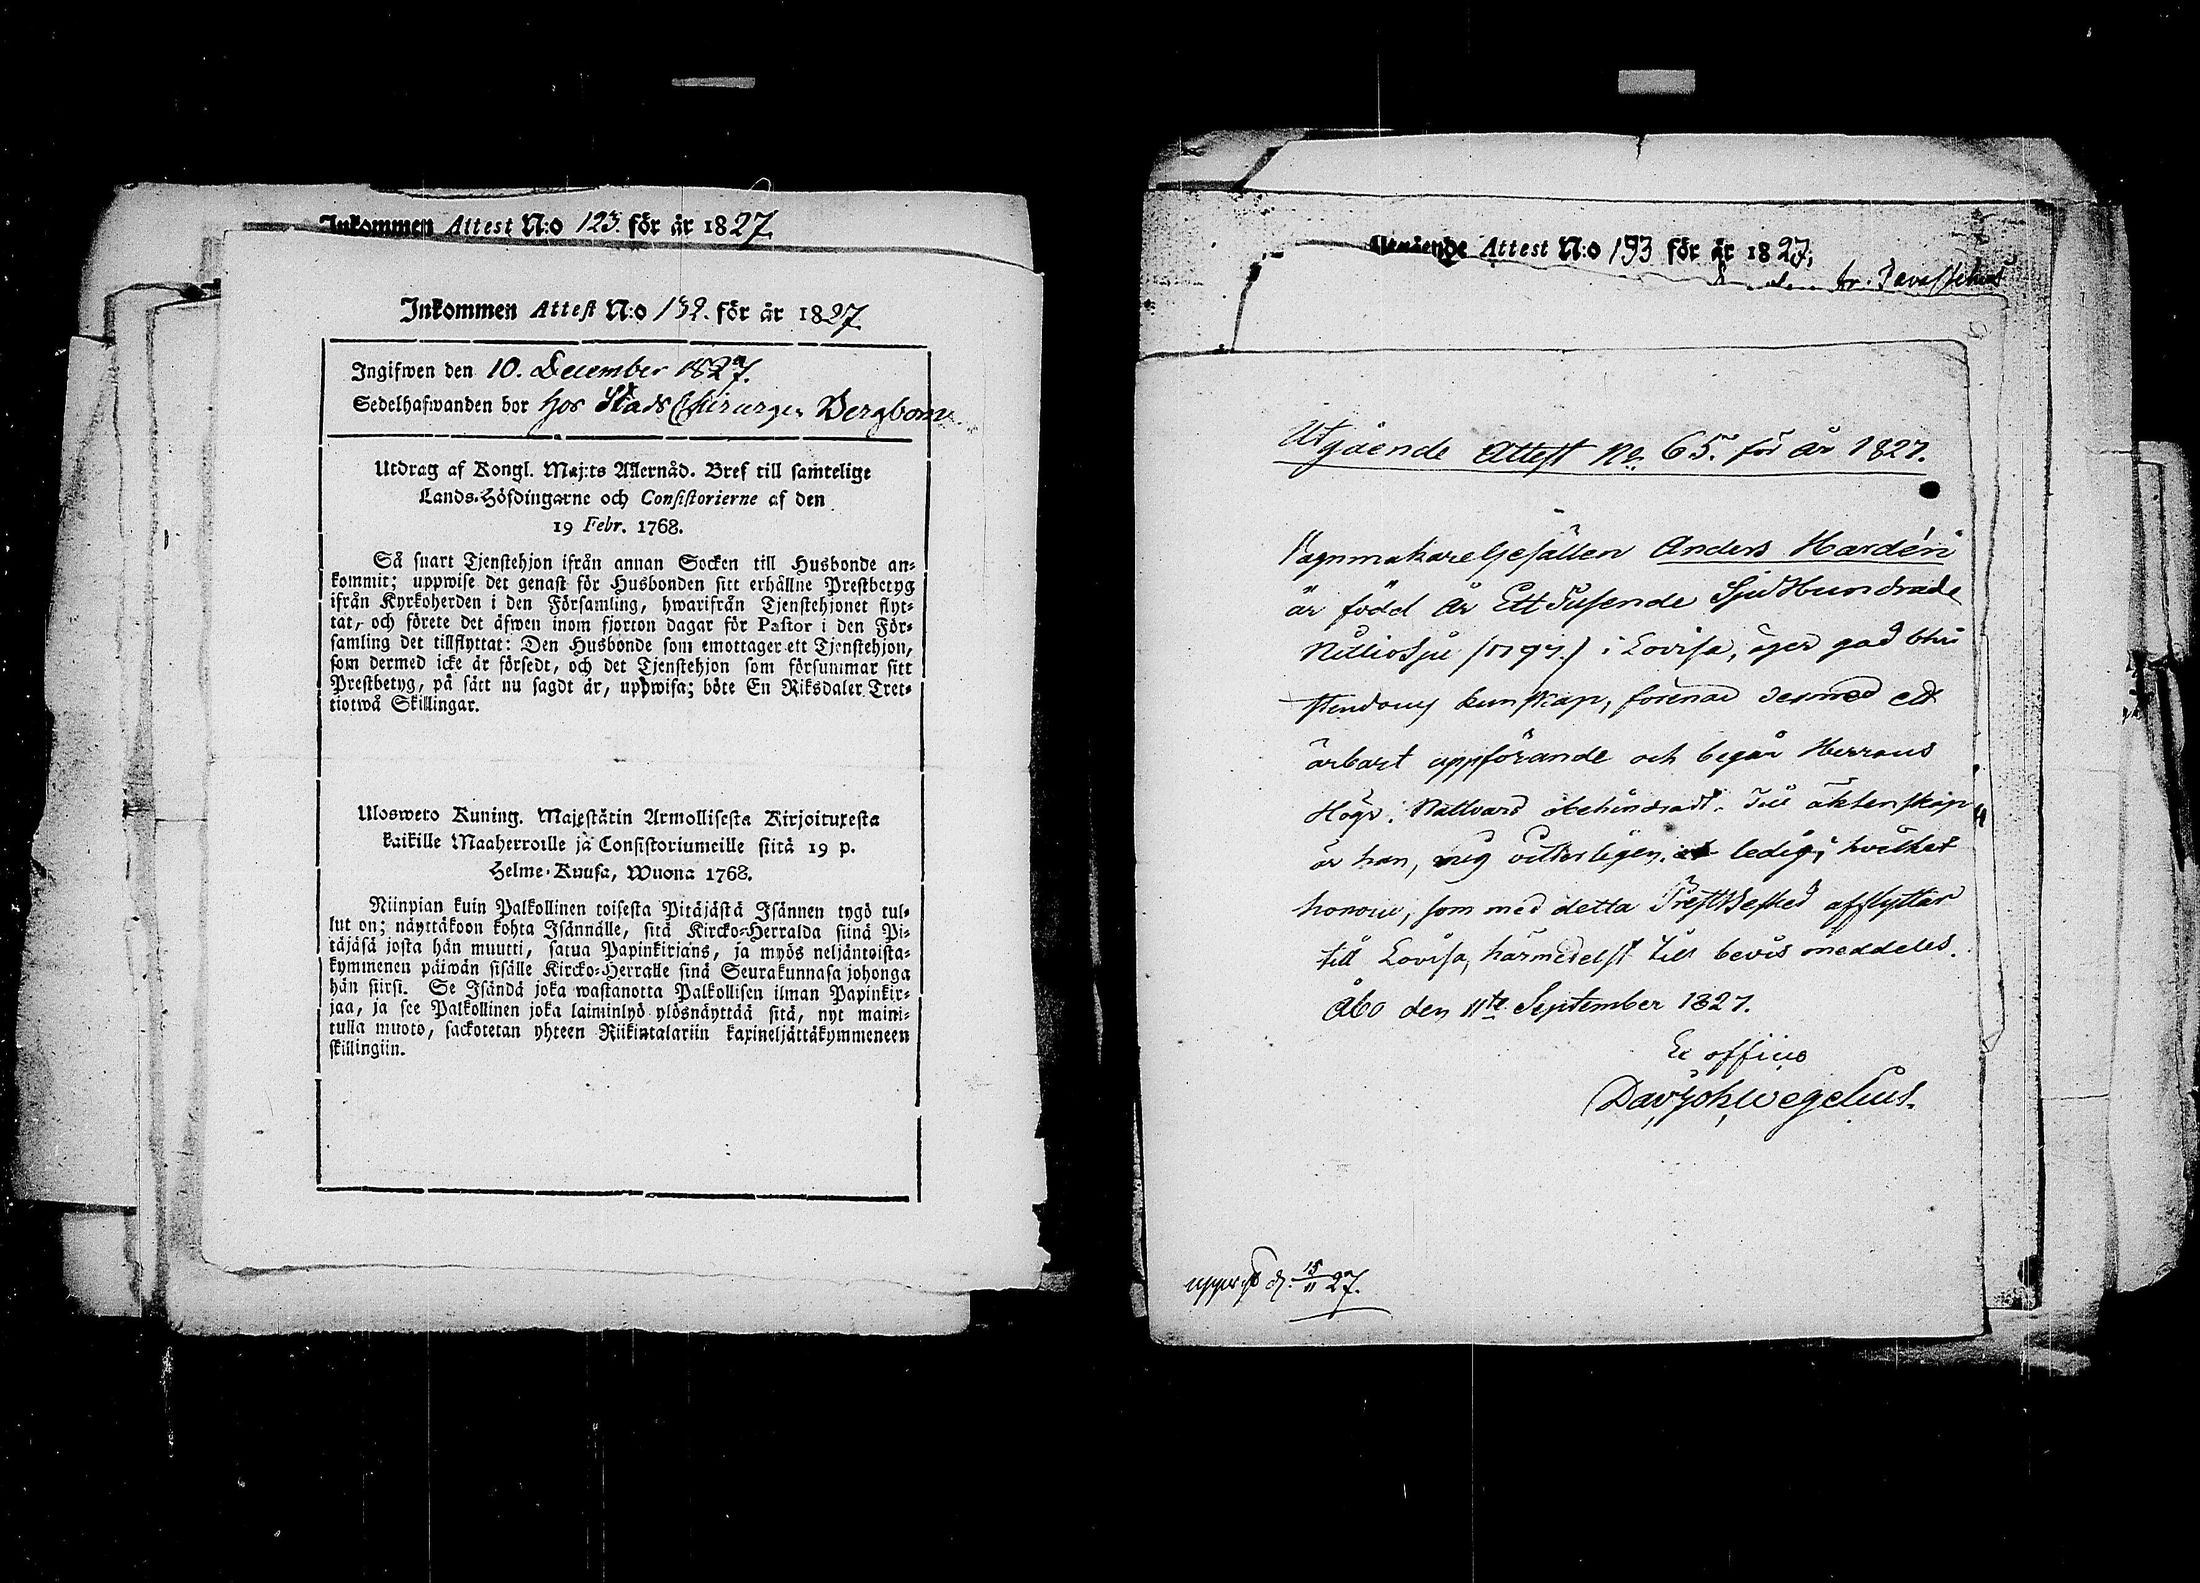 Inkommen Attest N:o 123. för år 1827
Inkommen Attest N:o 132. för år 1827
Ingifwen den 10. December 1827.
Sedelhafwanden bor hos Stads Chirurgen Bergbom
Utdrag af Kongl. Maj:ts Allernåd. Bref till samtelige
Lands-Höfdingarne och Consistorierne af den
19 Febr. 1768.
Så snart Tjenstehjon ifrån annan Socken till Husbonde an-
kommit; uppwise det genast för Husbonden sitt erhållne Prestbetyg
ifrån Kyrkoherden i den Församling, hwarifrån Tjenstehjonet flyt-
tat, och förete det äfwen inom fjorton dagar för Pastor i den För-
samling det tillflyttat: Den Husbonde som emottager ett Tjenstehjon,
som dermed icke är försedt, och det Tjenstehjon som försummar sitt
Prestbetyg, på sätt nu sagdt är, uppwisa; böte En Riksdaler Tret-
tiotwå Skillingar.
Uloswero Kuning. Majestätin Armollisesta Kirjoituxesta
kaikille Maaherroille ja Consistoriumeille siitä 19 p.
Helme-Kuusa, Wuona 1768.
Niinpian kuin Palkollinen toisesta Pitäjästä Isännen tygö tul-
lut on; näyttäkoon kohta Isännälle, sitä Kircko-Herralda siinä Pi-
täjäsä josta hän muutti, saatua Papinkirjans, ja myös neljäntoista-
kymmenen päiwän sisälle Kircko-Herralle sinä Seurakunnasa johonga
hän siirsi. Se Isändä joka wastanotta Palkollisen ilman Papinkir-
jaa, ja see Palkollinen joka laiminlyö ylösnäyttää sitä, nyt maini-
tulla muoto, sackotetan yhteen Riikintalariin kaxineljättäkymmeneen
skillingiin.
Utgående Attest N:o 193 för år 1827,
Utgående Attest No. 65. för år 1827.
Vagnmakare Gesällen Anders Hardén
är född År Ett Tusende Sjuhundrade
Nittiosju (1797.) i Lovisa, äger god Chri
stendoms kunskap, förenar dermed ett
ärbart uppförande och begår Herrans
Högv. Nattvard obehindradt. Till äktenskap
är han, mig vitterligen, ledig; hvilket
honom, som med detta Prest Besked afflyttar
till Lovisa, härmedelst till bevis meddeles.
Åbo den 11te September 1827.
Ex officio
Dav. Joh. Wegelius.
15/11 27.